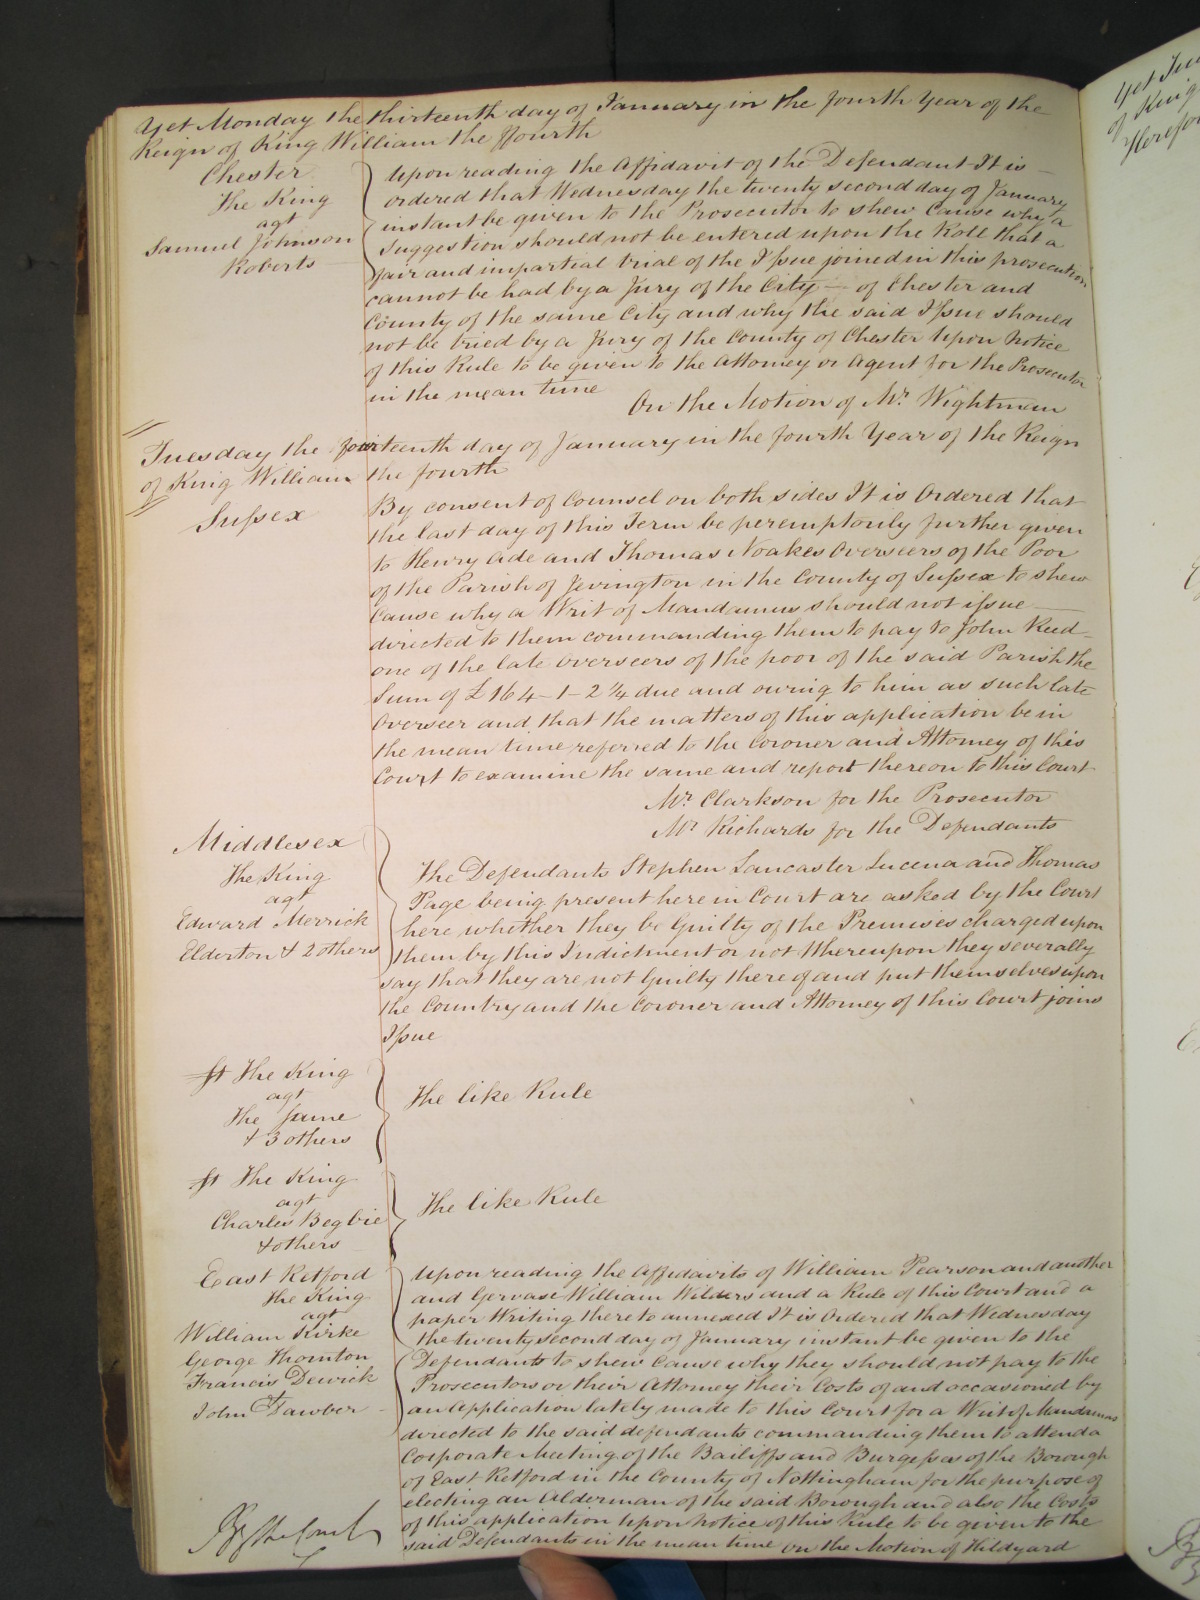 Yet Monday the thirteenth day of January in the fourth Year of the
Reign of King William the ffourth
Chester
The King
agt
Samuel Johnson
Roberts
Upon reading the Affidavit of the Defendant It is
ordered that Wednesday the twenty second day of January
instant be given to the Prosecutor to shew Cause why a
Suggestion should not be entered upon the Roll that a
fair and impartial trial of the Issue joined in this prosecution
cannot be had by a Jury of the City — of Chester and
County of the same City and why the said Issue should
not be tried by a Jury of the County of Chester Upon Notice
of this Rule to be given to the Attorney or Agent for the Prosecutor
in the mean time
On the Motion of Mr. Wightman
Tuesday the fourteenth day of January in the fourth Year of the Reign
of King William the fourth
Sussex
By consent of Counsel on both sides It is Ordered that
the last day of this Term be peremptorily further given
to Henry Ade and Thomas Noakes Overseers of the Poor
of the Parish of Jevington in the County of Sussex to shew
Cause why a Writ of Mandamus should not issue —
directed to them commanding them to pay to John Reed
one of the late Overseers of the poor of the said Parish the
Sum of £164-1-2¼ due and owing to him as such late
Overseer and that the matters of this application be in
the mean time referred to the Coroner and Attorney of this
Court to examine the same and report thereon to this Court
Mr. Clarkson for the Prosecutor
Mr Richards for the Defendants
Middlesex
The King
agt
Edward Merrick
Elderton & 2 others
The Defendants Stephen Lancaster Lucena and Thomas
Page being present here in Court are asked by the Court
here whether they be Guilty of the Premises charged upon
them by this Indictment or not thereupon they severally
say that they are not Guilty thereof and put themselves upon
the Country and the Coroner and Attorney of this Court joins
Issue
The King
agt
The Same
& 3 others
The like Rule
The King
agt
Charles Begbie
& others
The like Rule
East Retford
The King
agt
William Kirke
George Thornton
Francis Dewick
John Fawber
Upon reading the Affidavits of William Pearson and another
and Gervase William Wilders and a Rule of this Court and a
paper Writing thereto annexed It is Ordered that Wednesday
the twenty second day of January instant be given to the
Defendants to shew Cause why they should not pay to the
Prosecutors or their Attorney their Costs of and occasioned by
an Application lately made to this Court for a Writ of Mandamus
directed to the said defendants commanding them to attend a
Corporate Meeting of the Bailiffs and Burgesses of the Borough
of East Retford in the County of Nottingham for the purpose of
electing an Alderman of the said Borough and also the Costs
of this application Upon Notice of this Rule to be given to the
said Defendants in the mean time On the Motion of Hildyard